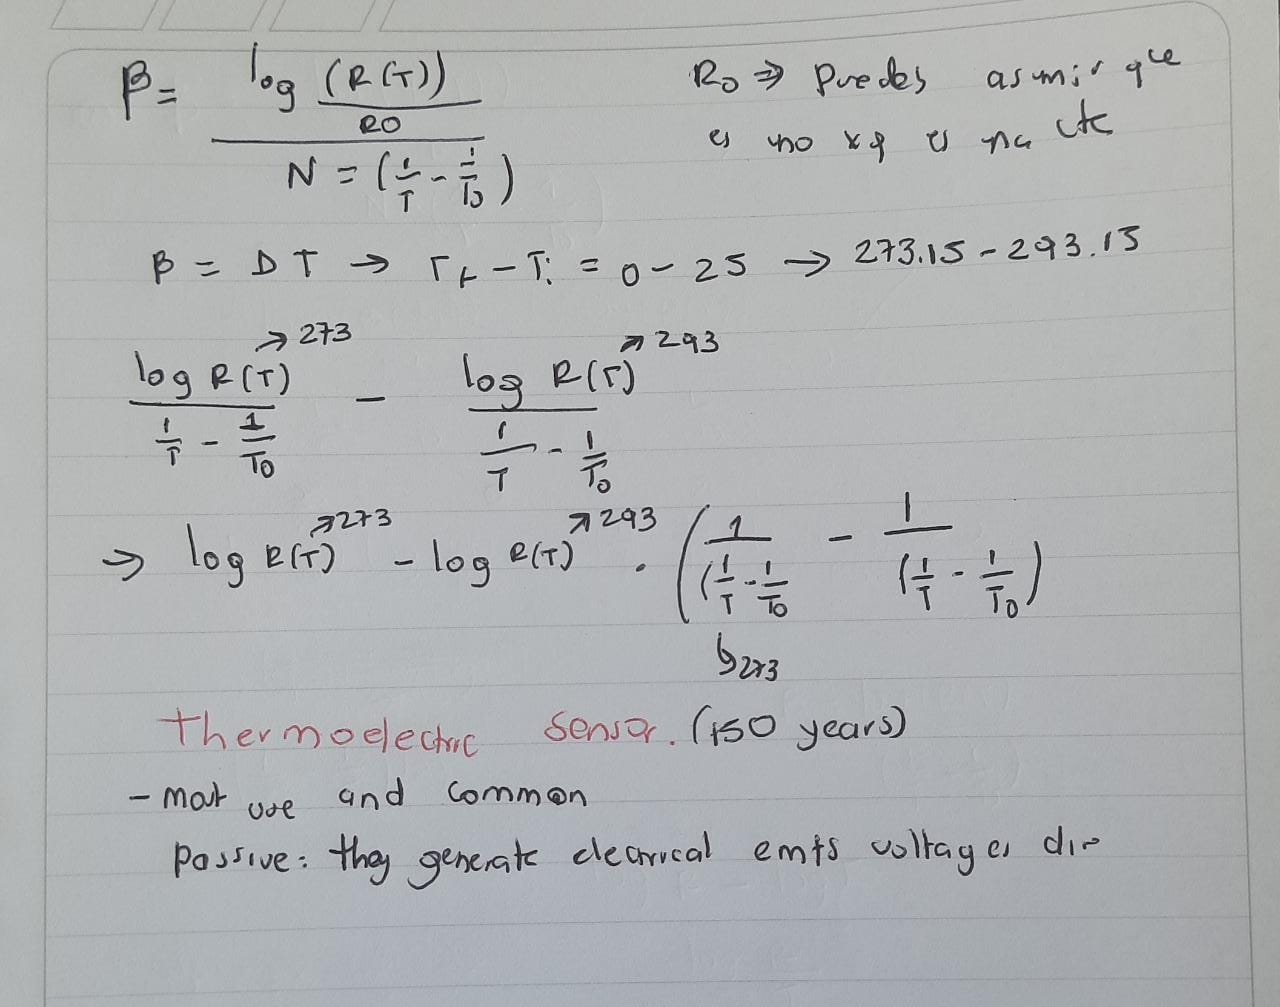 β = log (R(T)) / R0 / N = (1/T - 1/T0)
R0 ⇒ puedes asmir que
es no xq es na cte
β = DT → Tf - Ti = 0 - 25 → 273.15 - 293.15
log R(T) → 273 / 1/T - 1/T0 - log R(T) → 293 / 1/T - 1/T0
⇒ log R(T) → 273 - log R(T) → 293 . (1 / (1/T - 1/T0 - 1 / (1/T - 1/T0)
↳ 273
Thermoelectric Sensor. (150 years)
- most use and common
passive: they generate electrical emfs voltages dir